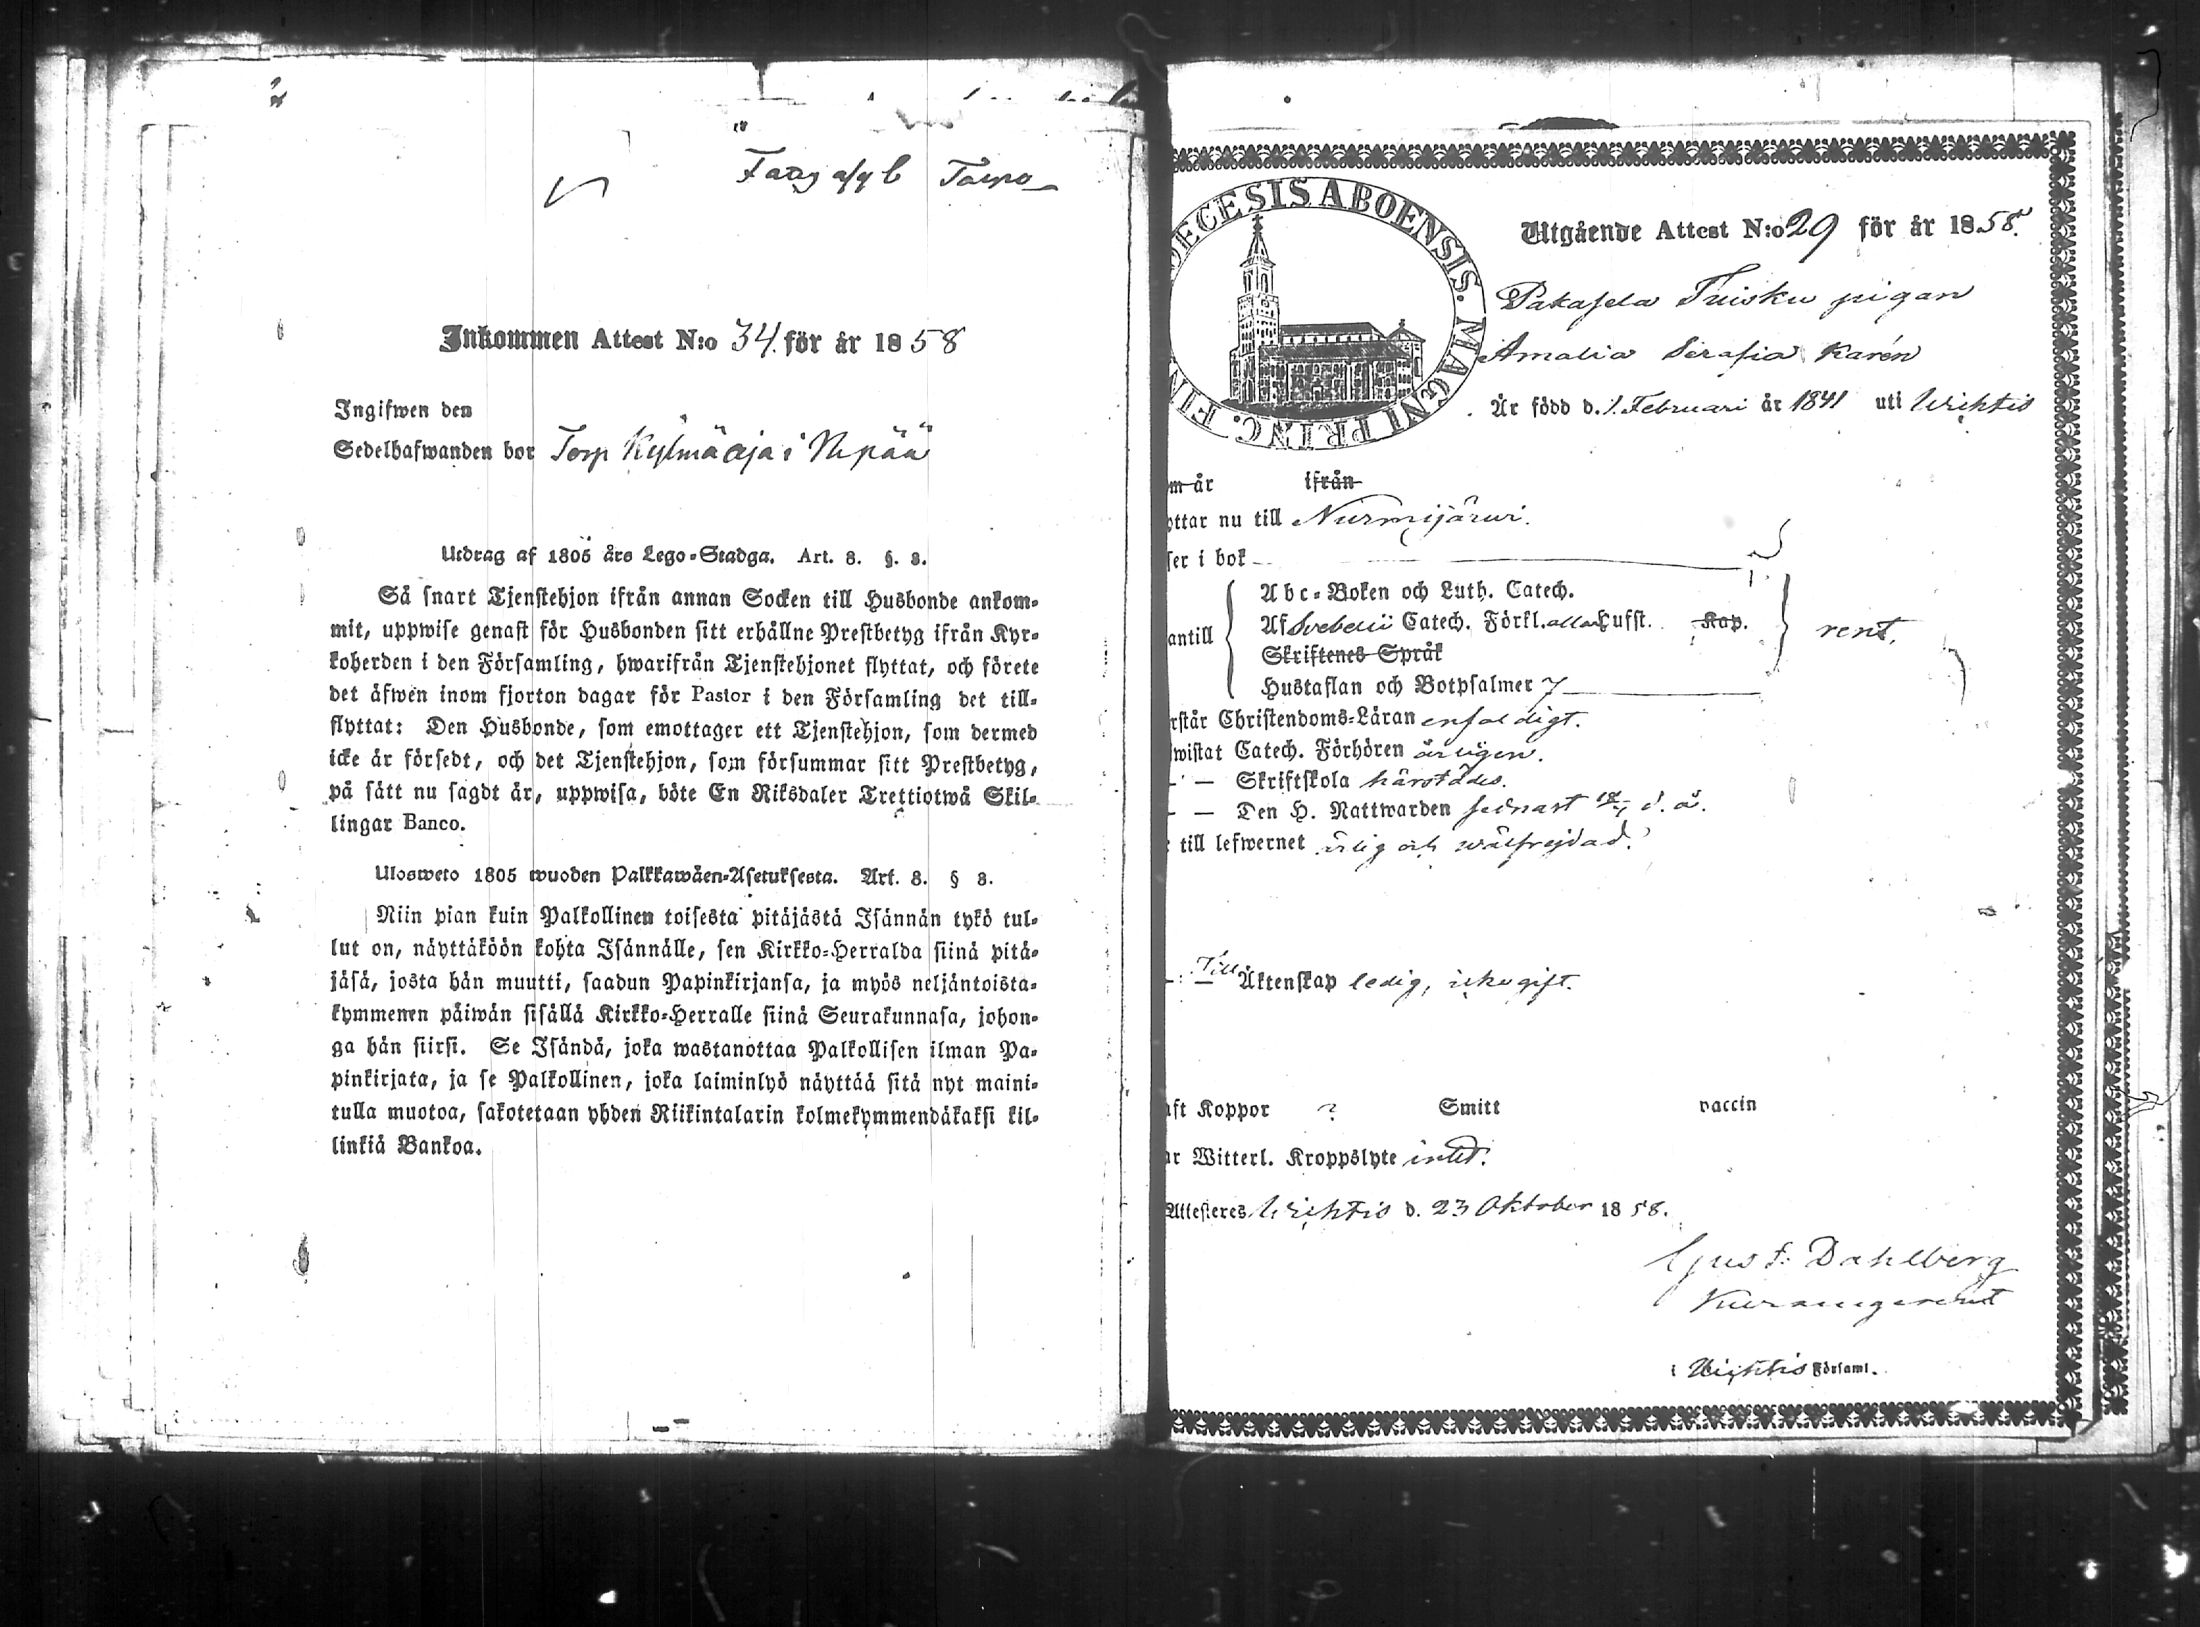 Inkommen Attest N:o 34. för år 1858
Ingifwen den
Sedelhafwanden bor Torp Kylmäoja i Npää
Utdrag af 1805 års Lego-Stadga. Art. 8. §. 8.
Så snart Tjenstehjon ifrån annan Socken till Husbonde ankom-
mit, uppwise genast för Husbonden sitt erhållne Prestbetyg ifrån Kyr-
koherden i den Församling, hwarifrån Tjenstehjonet flyttat, och förete
det äfwen inom fjorton dagar för Pastor i den Församling det till-
flyttat: Den Husbonde, som emottager ett Tjenstehjon, som dermed
icke är försedt, och det Tjenstehjon, som försummar sitt Prestbetyg,
på sätt nu sagdt är, uppwisa, böte En Riksdaler Trettiotwå Skil-
lingar Banco.
Ulosweto 1805 wuoden Palkkawäen-Asetuksesta. Art. 8. § 8.
Niin pian kuin Palkollinen toisesta pitäjästä Isännän tykö tul-
lut on, näyttäköön kohta Isännälle, sen Kirkko-Herralda siinä pitä-
jäsä, josta hän muutti, saadun Papinkirjansa, ja myös neljäntoista-
kymmenen päiwän sisällä Kirkko-Herralle siinä Seurakunnasa, johon-
ga hän siirsi. Se Isändä, joka wastanottaa Palkollisen ilman Pa-
pinkirjata, ja se Palkollinen, joka laiminlyö näyttää sitä nyt maini-
tulla muotoa, sakotetaan yhden Riikintalarin kolmekymmendäkaksi kil-
linkiä Bankoa.
DECESIS ABOENSIS. MAGNI PRINC. FIN
Utgående Attest N:o 29 för år 1858.
Pakasela Tuisku pigan
Amalia Serafia Karén
Är född d. 1 Februari år 1841 uti Wichtis
m år ifrån
ttar nu till Nurmijärwi.
ser i bok
antill
Abc-Boken och Luth. Catech.
Af Svebelii Catech. Förkl. allan Hufst. Kap.
Skriftenes Språk
Hustaflan och Botpsalmer 7
rent.
rstår Christendoms-Läran enfaldigt.
wistat Catech. Förhören årligen.
— Skriftskola härstädes.
— Den H. Nattwarden sednast d. å.
till lefwernet ärlig och wälfrejdad.
Till Äktenskap ledig, icke gift.
aft Koppor ? Smitt vaccin
ar Witterl. Kroppslyte intet.
Attesteres Wichtis d. 23 Oktober 1858.
Gust. Dahlberg
i Wichtis Församl.